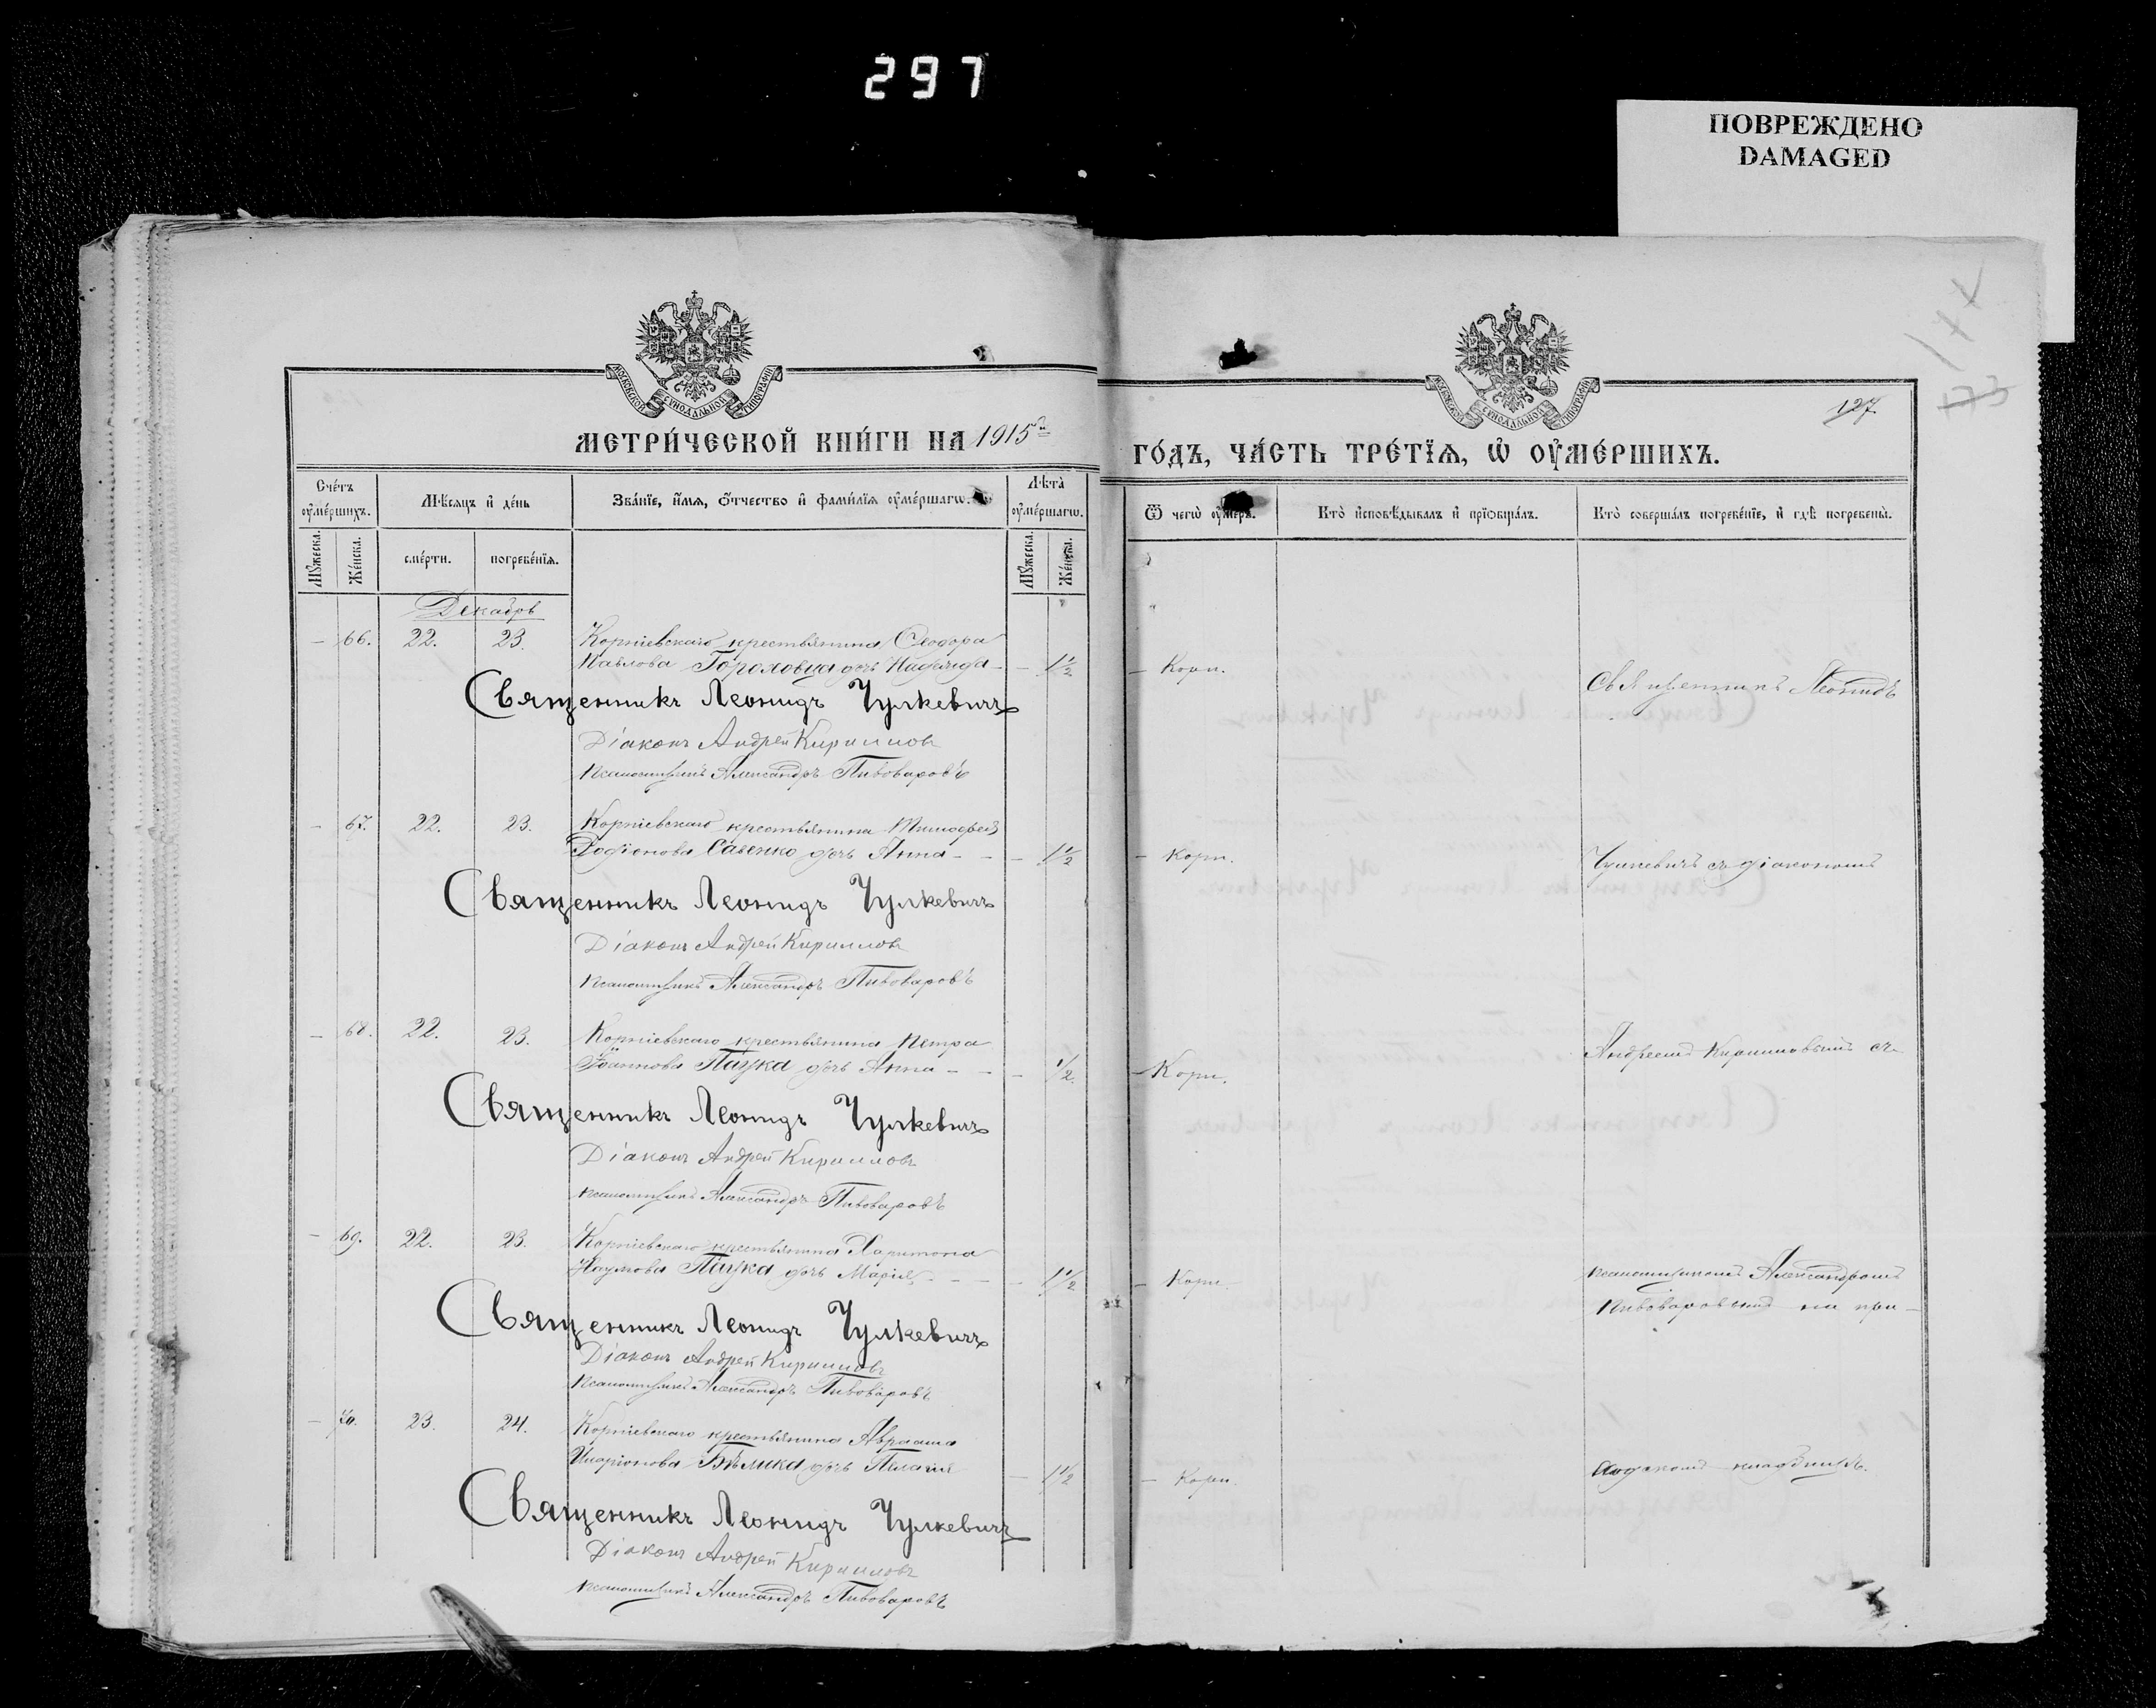 297
ПОВРЕЖДЕНО
DAMAGED
МОСКОВСКОЙ СѴНОДАЛЬНОЙ ТИПОГРАФІИ
МОСКОВСКОЙ СѴНОДАЛЬНОЙ ТИПОГРАФІИ
127.
173
МЕТРИ́ЧЕСКОЙ КНИ́ГИ НА 1915й
ГО́ДЪ, ЧА́СТЬ ТРЕ́ТЇѦ, Ѡ҆ ОУ҆МЕ́РШИХЪ.
Сче́тъ оу҆ме́ршихъ.
Мѣ́сяцъ и҆ де́нь
Зва́нїе, и҆́мя, ѻ҆́тчество и҆ фами́лїя оу҆ме́ршагѡ.
Лѣ́та оу҆ме́ршагѡ.
Ѿ чегѡ̀ оу҆́меръ.
Кто̀ и҆сповѣ́дывалъ и҆ прїѡбща́лъ.
Кто̀ соверша́лъ погребе́нїе, и҆ гдѣ̀ погребены̀.
Мꙋ́жеска.
Же́нска.
сме́рти.
погребе́нїя.
Мꙋ́жеска.
Же́нска.
Декабрь
– 66. 22. 23. Корніевскаго крестьянина Ѳеодора
Павлова Гороховца дочь Надежда – – 1½ – Корп.
Священникъ Леонидъ
Священникъ Леонидъ Чулкевичъ
Діаконъ Андрей Кирилловъ
Псаломщикъ Александръ Пивоваровъ
– 67. 22. 23. Корніевскаго крестьянина Тимофея
Родіонова Савенко дочь Анна – – – 1½ – Корп.
Чулкевичъ съ діакономъ
Священникъ Леонидъ Чулкевичъ
Діаконъ Андрей Кирилловъ
Псаломщикъ Александръ Пивоваровъ
– 68. 22. 23. Корніевскаго крестьянина Петра
Іоаннова Паука дочь Анна – – – ½. – Корп.
Андреемъ Кирилловымъ съ
Священникъ Леонидъ Чулкевичъ
Діаконъ Андрей Кирилловъ
Псаломщикъ Александръ Пивоваровъ
– 69. 22. 23. Корніевскаго крестьянина Харитона
Наумова Паука дочь Марія – – – – 1½ – Корп.
псаломщикомъ Александромъ
Пивоваровымъ на при-
Священникъ Леонидъ Чулкевичъ
Діаконъ Андрей Кирилловъ
Псаломщикъ Александръ Пивоваровъ
– 70. 23. 24. Корніевскаго крестьянина Авраама
Иларіонова Бѣлика дочь Пелагія – 1½ – Корп.
ходскомъ кладбищѣ.
Священникъ Леонидъ Чулкевичъ
Діаконъ Андрей Кирилловъ
Псаломщикъ Александръ Пивоваровъ